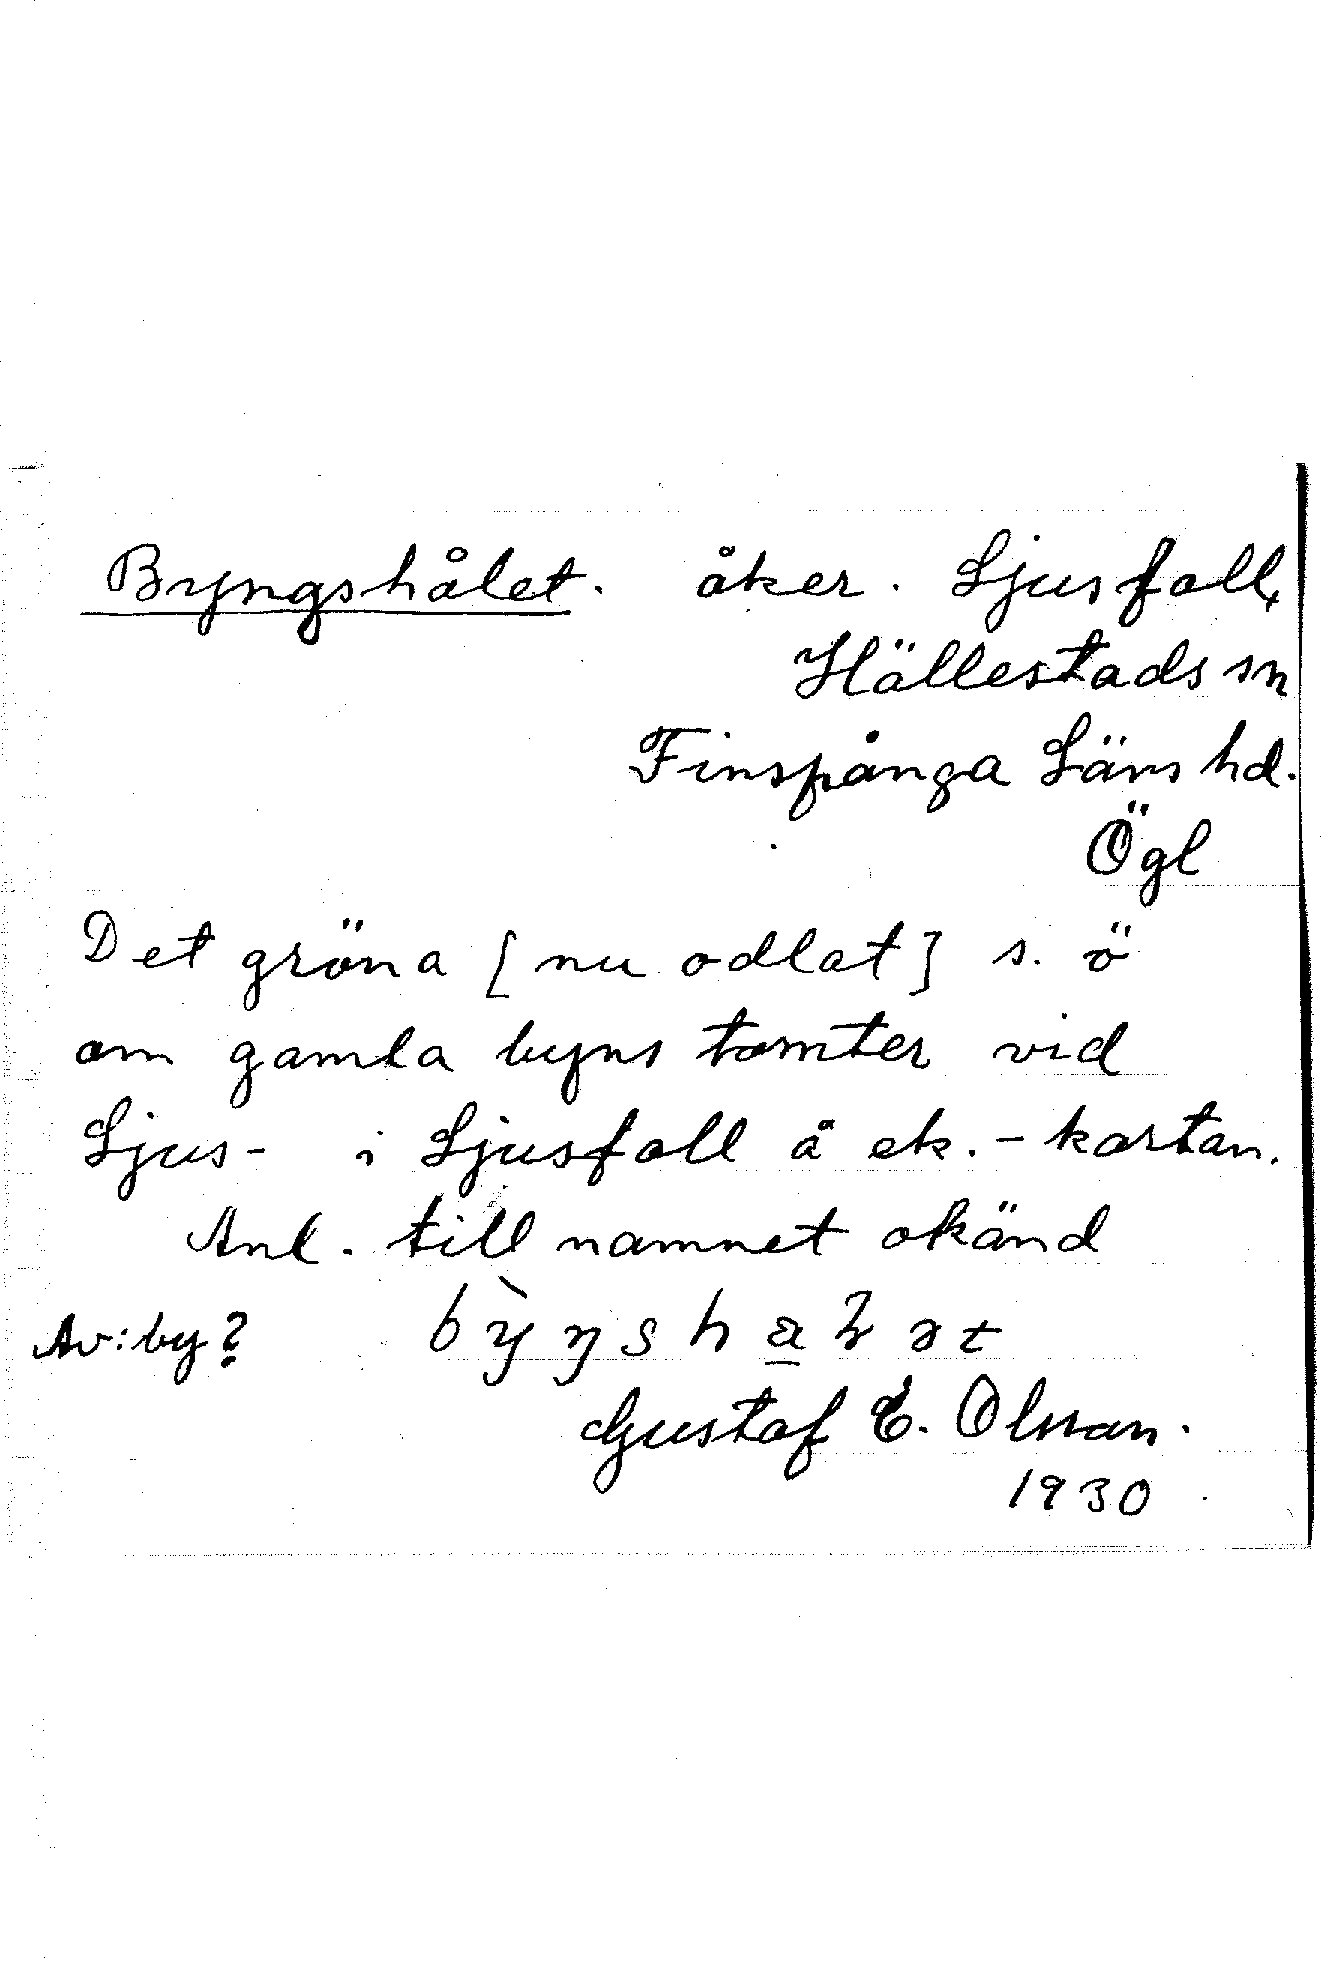 Byngshålet. åker. Ljusfall,
Hällestads sn
Finspånga Läns hd.
Ögl
Det gröna [nu odlat] s. ö
om gamla byns tomter vid
Ljus- i Ljusfall å ek.-kartan.
Anl. till namnet okänd
Av: by?
Gustaf E. Olsson.
1930